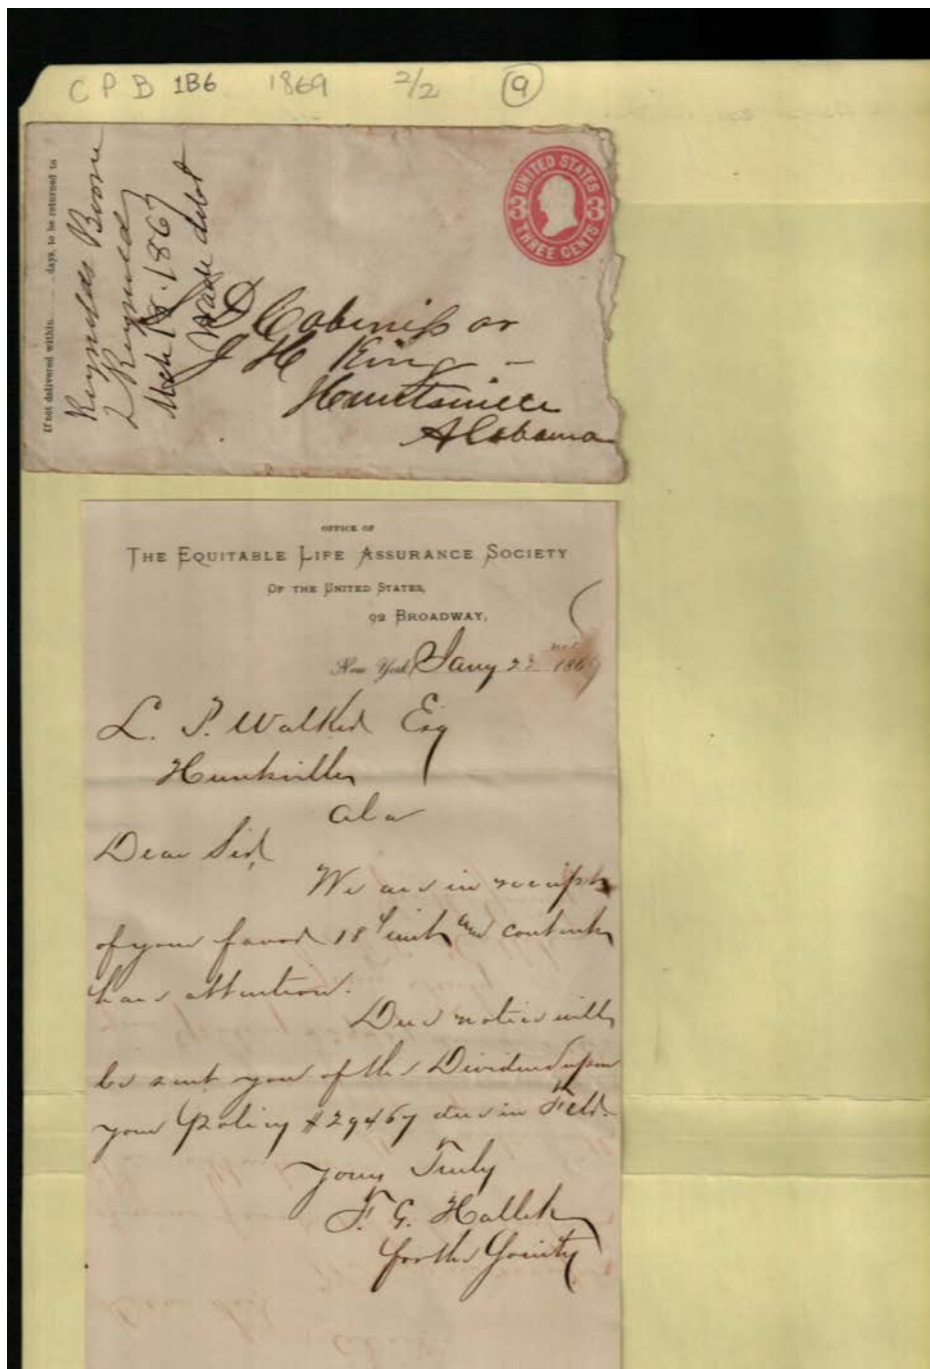 C P B 1B6 1869 2/2 9
If not delivered within ........ days, to be returned to
Reynolds Boone
2 Reynolds
Mch 18. 1867
Wade debt
UNITED STATES
3 3
THREE CENTS
S D Cabiniss or
J H King
Huntsville
Alabama
OFFICE OF
THE EQUITABLE LIFE ASSURANCE SOCIETY
OF THE UNITED STATES,
92 BROADWAY,
New York, Jany 23 1869
L. P. Walker Esq
Huntsville
Ala
Dear Sir,
We are in receipt
of your favor 18th inst and contents
have attention.
Due notice will
be sent you of the Dividend upon
your Policy #29467 due in Feb.
Yours Truly
F. G. Hallek
for the Society